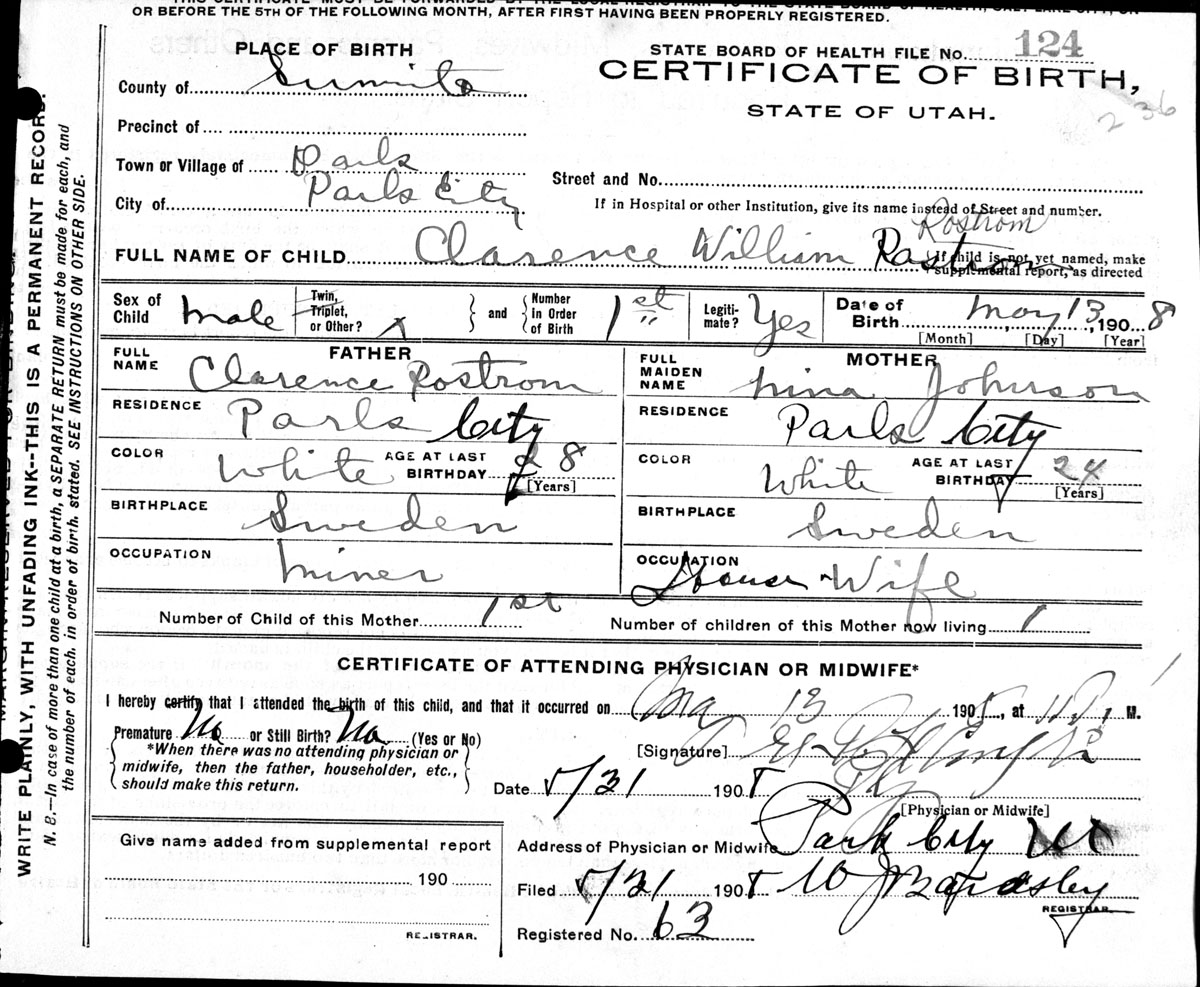 OR BEFORE THE 5TH OF THE FOLLOWING MONTH, AFTER FIRST HAVING BEEN PROPERLY REGISTERED.
PLACE OF BIRTH
STATE BOARD OF HEALTH FILE No. 124
County of Summit
CERTIFICATE OF BIRTH,
STATE OF UTAH.
236
Precinct of
Town or Village of Park
Street and No.
City of Park City
If in Hospital or other Institution, give its name instead of Street and number.
Rostrom
FULL NAME OF CHILD Clarence William Rostrom
If child is not yet named, make supplemental report, as directed
Sex of Child Male
Twin, Triplet, or Other?
and
Number in Order of Birth 1st
Legiti-mate? Yes
Date of Birth May 13, 1908
[Month] [Day] [Year]
FATHER
MOTHER
FULL NAME Clarence Rostrom
FULL MAIDEN NAME Nina Johnson
RESIDENCE Park City
RESIDENCE Park City
COLOR White AGE AT LAST BIRTHDAY 28 [Years]
COLOR White AGE AT LAST BIRTHDAY 24 [Years]
BIRTHPLACE Sweden
BIRTHPLACE Sweden
OCCUPATION Miner
OCCUPATION House Wife
Number of Child of this Mother 1st
Number of children of this Mother now living 1
CERTIFICATE OF ATTENDING PHYSICIAN OR MIDWIFE*
I hereby certify that I attended the birth of this child, and that it occurred on May 13 1908, at 11 P. M.
Premature No or Still Birth? No (Yes or No)
*When there was no attending physician or midwife, then the father, householder, etc., should make this return.
[Signature]
Date 5/31 1908
[Physician or Midwife]
Give name added from supplemental report
190
REGISTRAR.
Address of Physician or Midwife Park City
Filed 5/31 1908 W J Bardsley
REGISTRAR
Registered No. 63
WRITE PLAINLY, WITH UNFADING INK--THIS IS A PERMANENT RECORD.
N. B.--In case of more than one child at a birth, a SEPARATE RETURN must be made for each, and
the number of each, in order of birth, stated. SEE INSTRUCTIONS ON OTHER SIDE.